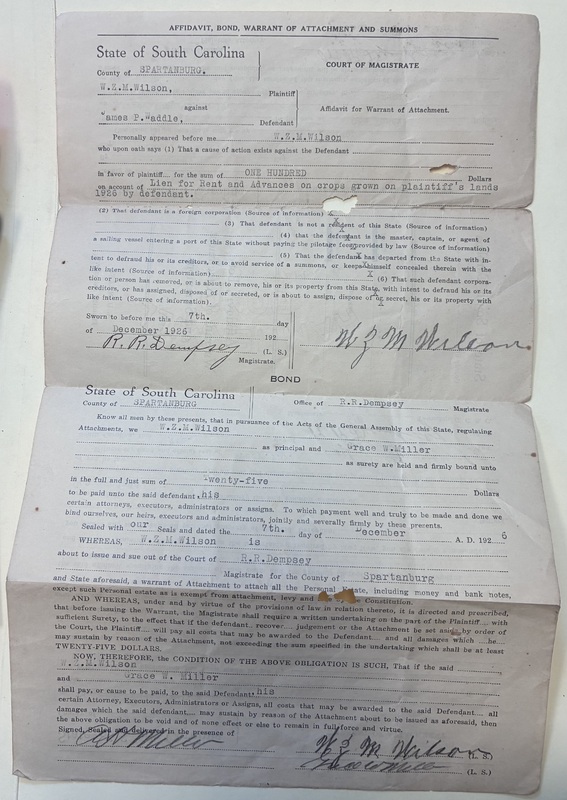 AFFIDAVIT, BOND, WARRANT OF ATTACHMENT AND SUMMONS
State of South Carolina
County of SPARTANBURG.
COURT OF MAGISTRATE
W.Z.M.Wilson,
Plaintiff
against
Affidavit for Warrant of Attachment.
ames P. addle,
Defendant
Personally appeared before me W.Z.M.Wilson
who upon oath says (1) That a cause of action exists against the Defendant
In favor of plaintiff... for the sum of ONE HUNDRED Dollars
on account of Lien for Rent and Advances on crops grown on plaintiff's lands
1926 by defendant.
(2) That defendant is a foreign corporation (Source of information)
(3) That defendant is not a resident of this State (Source of information)
(4) (that the defendant is the master, captain, or agent of
a sailing vessel entering a port of this State without paying the pilotage fee provided by law (Source of information)
(5) That the defendant has departed from this State with in-
tent to defraud his or its creditors, or to avoid service of a summons, or keeps himself concealed therein with the
like intent (Source of information) (6) That such defendant corpora-
tion or person has removed, or is about to remove, his or its property from this State, with intent to defraud his or its
creditors, or has assigned, disposed of or secreted, or is about to assign, dispose of or secret, his or its property with
like intent (Source of information).
Sworn to before me this 7th. day
of December 1926 192
R. R. Dempsey (L. S.)
Magistrate.
W Z M Wilson
BOND
State of South Carolina
County of SPARTANBURG
Office of R.R.Dempsey Magistrate
Know all men by these presents, that in pursuance of the Acts of the General Assembly of this State, regulating
Attachments, we W.Z.M.Wilson
as principal and Grace W.Miller
as surety are held and firmly bound unto
in the full and just sum of wenty-five Dollars
to be paid unto the said defendant, his
certain attorneys, executors, administrators or assigns. To which payment well and truly to be made and done we
bind ourselves, our heirs, executors and administrators, jointly and severally firmly by these presents.
Sealed with our Seals and dated the 7th. day of December A. D. 192 6
WHEREAS, W.Z.M.Wilson is
about to issue and sue out of the Court of R.R.Dempsey
Magistrate for the County of Spartanburg
and State aforesaid, a warrant of Attachment to attach all the Personal Estate, including money and bank notes,
except such Personal estate as is exempt from attachment, levy and Constitution.
AND WHEREAS, under and by virtue of the provisions of law in relation thereto, it is directed and prescribed,
that before issuing the Warrant, the Magistrate shall require a written undertaking on the part of the Plaintiff.... with
sufficient Surety, to the effect that if the defendant.. recover.. judgement or the Attachment be set aside by order of
the Court, the Plaintiff.... will pay all costs that may be awarded to the Defendant.... and all damages which ...he....
may sustain by reason of the Attachment, not exceeding the sum specified in the undertaking which shall be at least
TWENTY-FIVE DOLLARS.
NOW, THEREFORE, the CONDITION OF THE ABOVE OBLIGATION IS SUCH, That if the said
W.Z.M.Wilson
and Grace W. Miller
shall pay, or cause to be paid, to the said Defendant his
certain Attorney, Executors, Administrators or Assigns, all costs that may be awarded to the said Defendant.... all
damages which the said defendant.... may sustain by reason of the Attachment about to be issued as aforesaid, then
the above obligation to be void and of none effect or else to remain in full force and virtue.
Signed, Sealed and delivered in the presence of
Miller
W Z M Wilson (L. S.)
(L. S.)